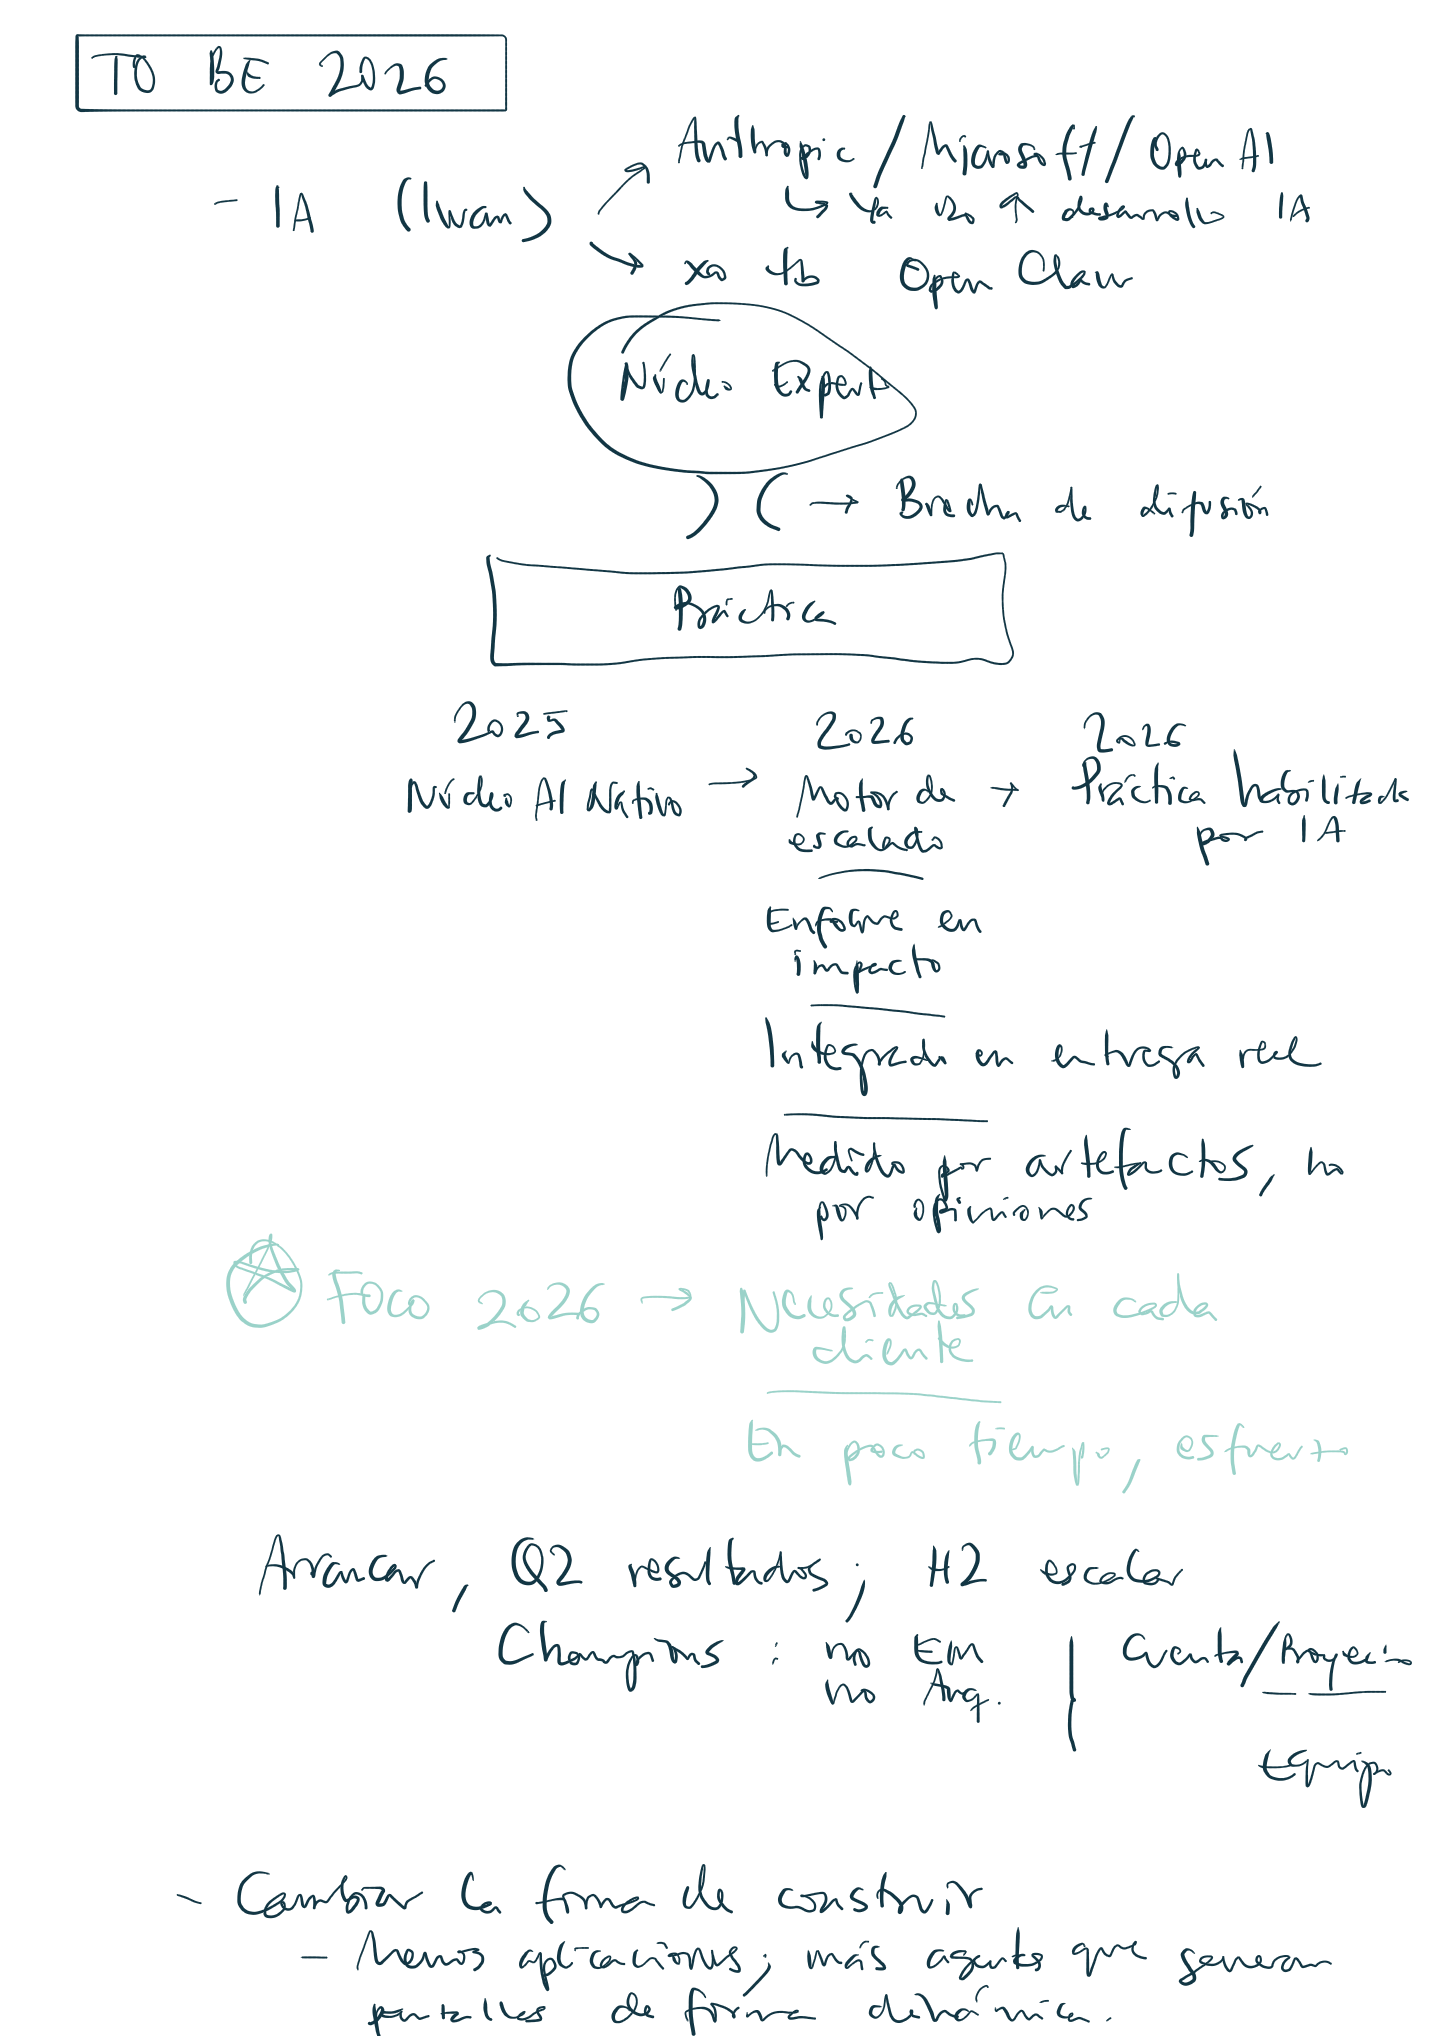 TO BE 2026
Anthropic / Microsoft / Open AI
- IA (Iwan)
↳ Ya uso ↑ desarrollo IA
xo tb Open Claw
Núcleo Expert
) ( → Brecha de difusión
Práctica
2025 2026 2026
Núcleo AI Nativo → Motor de → Práctica habilitada
escalado por IA
Enfoque en
impacto
Integrado en entrega real
Medido por artefactos, no
por opiniones
Foco 2026 → Necesidades en cada
cliente
En poco tiempo, esfuerzo
Arrancar, Q2 resultados; H2 escalar
Champions : no EM Cuenta/Proyecto
no Arq.
Equipo
- Cambiar la forma de construir
- Menos aplicaciones; más agentes que generan
pantallas de forma dinámica.